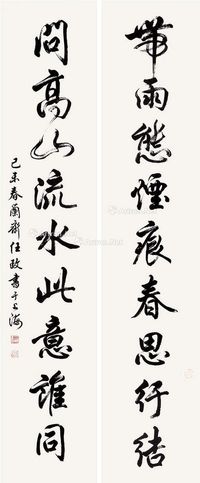 带雨態煙痕春思紆結
問高山流水此意誰同
己未春蘭齋任政書于上海